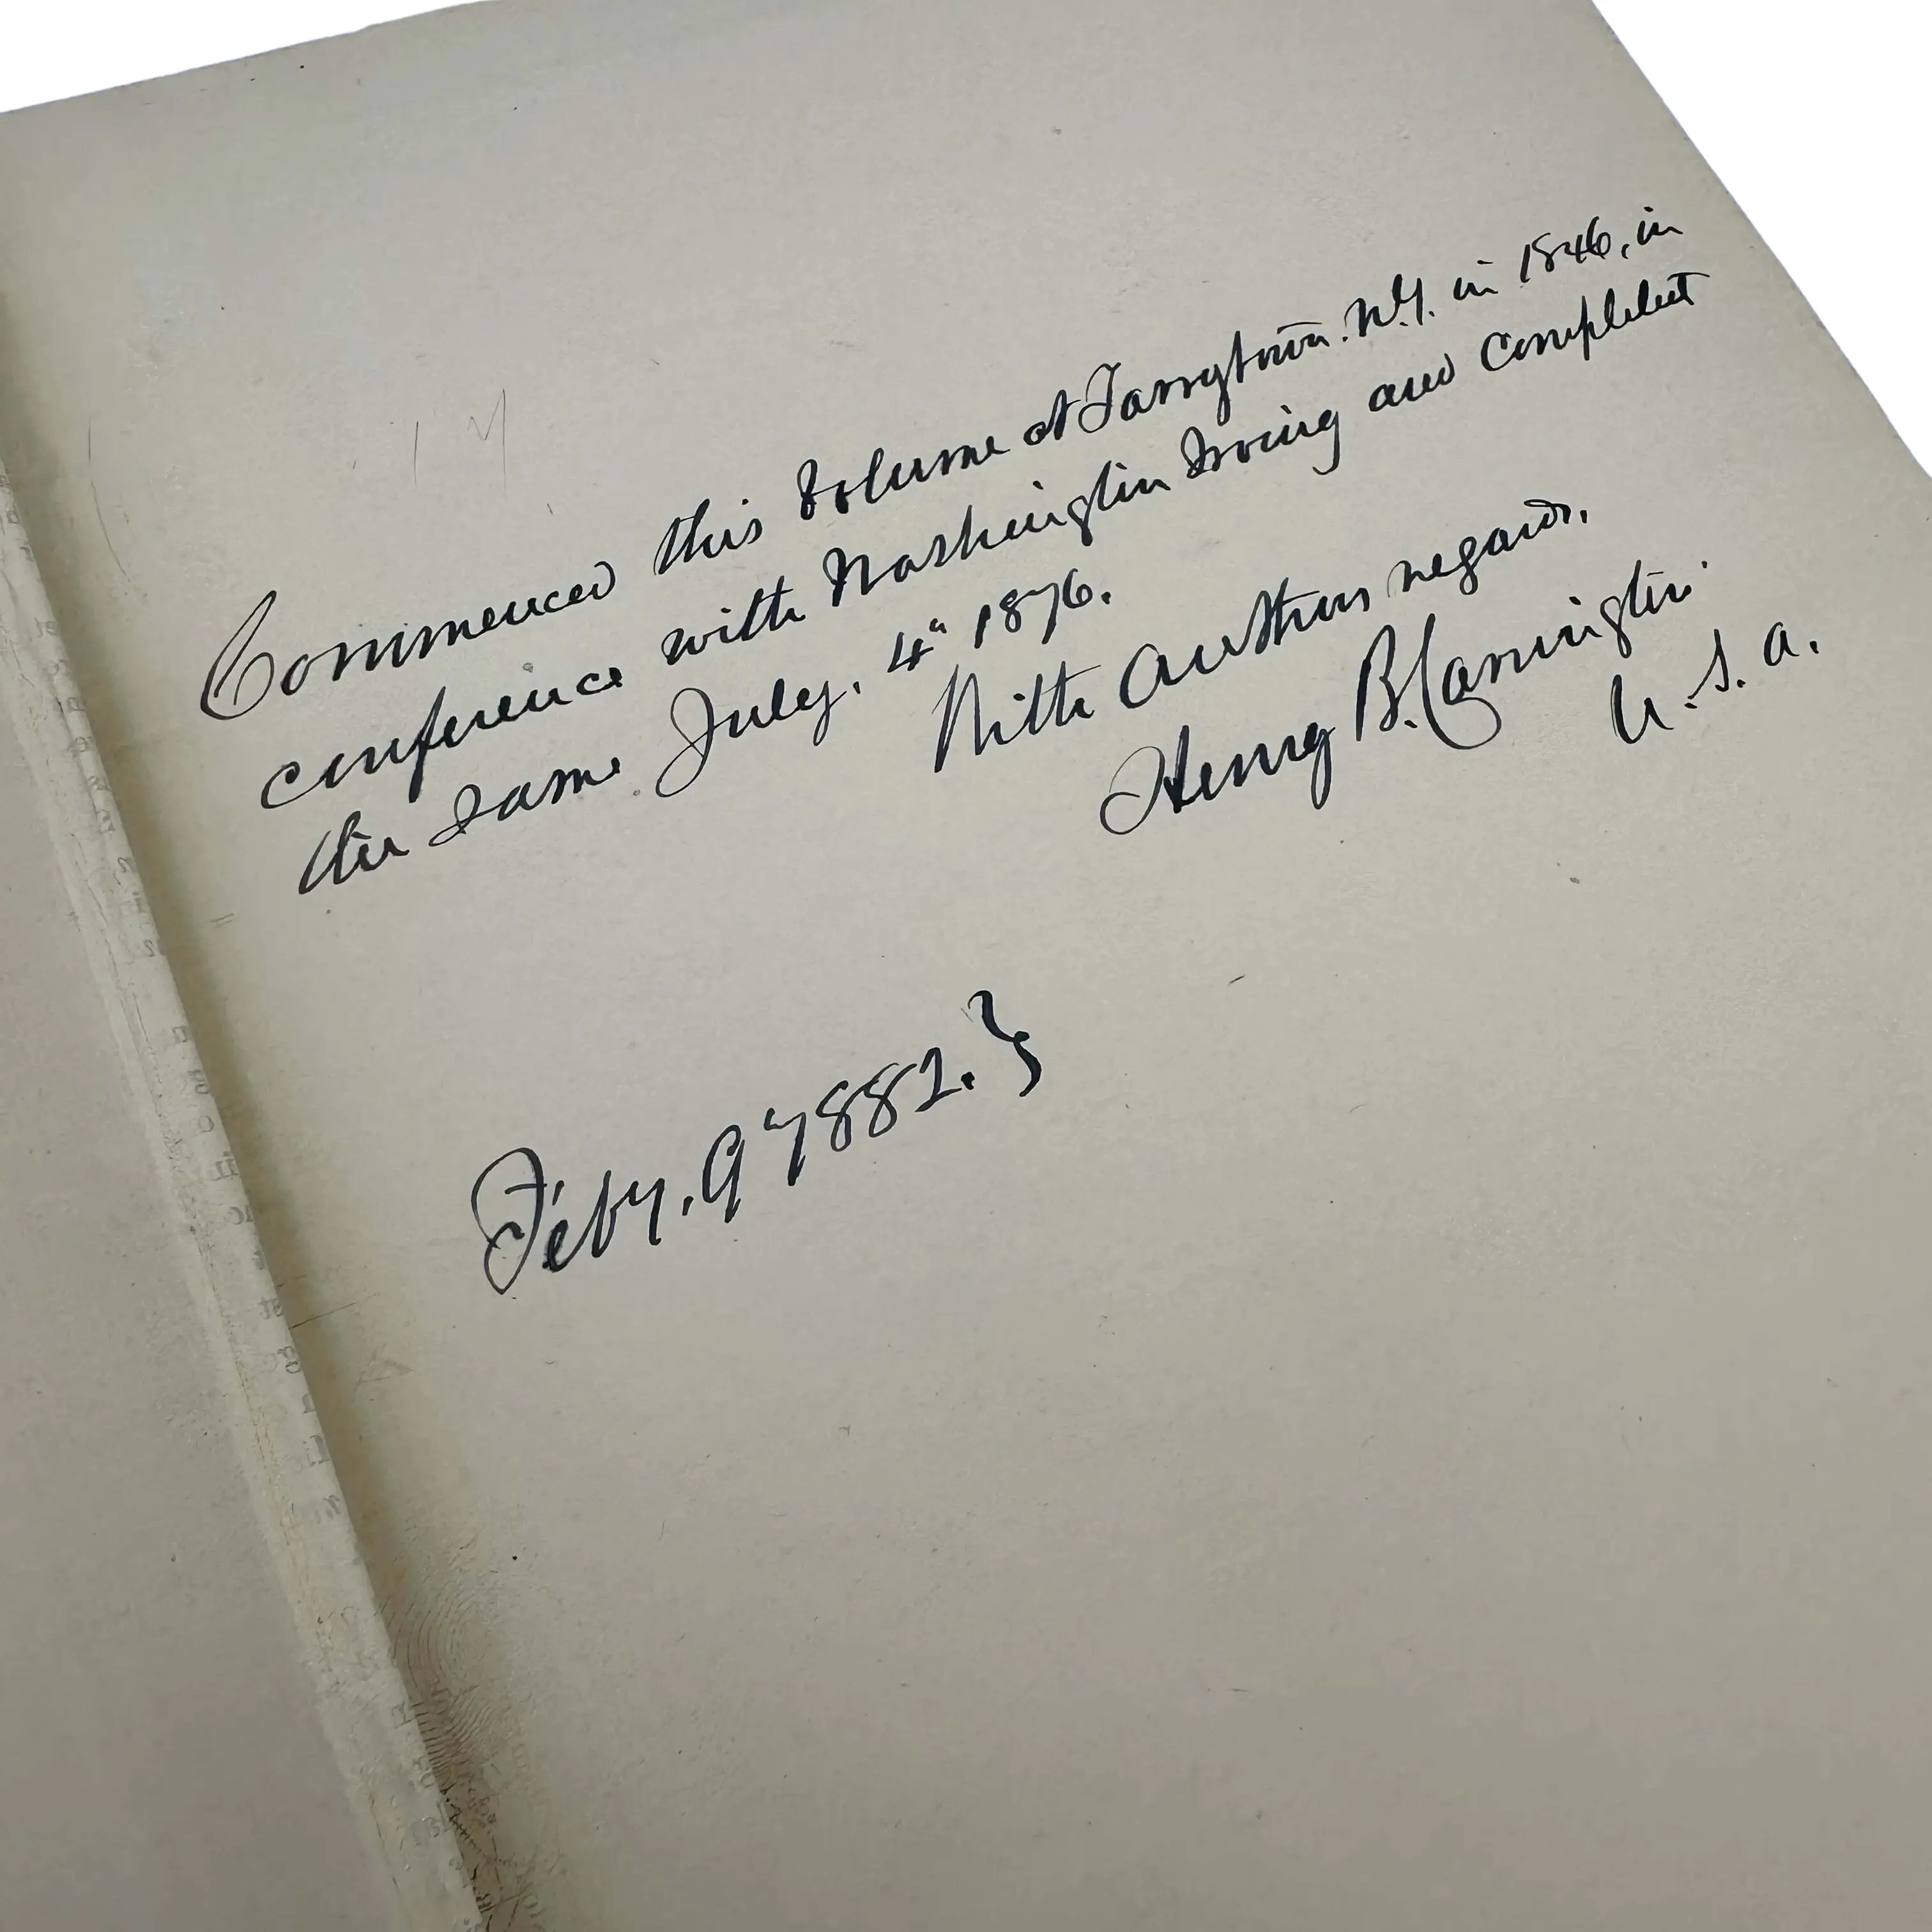 Commenced this volume at Tarrytown. N.Y. in 1846, in
conference with Washington Irving and Completed
the same July. 4" 1876.
With Authors regards.
Henry B. Carrington.
U.S.A.
Feby. 9" 1882. }